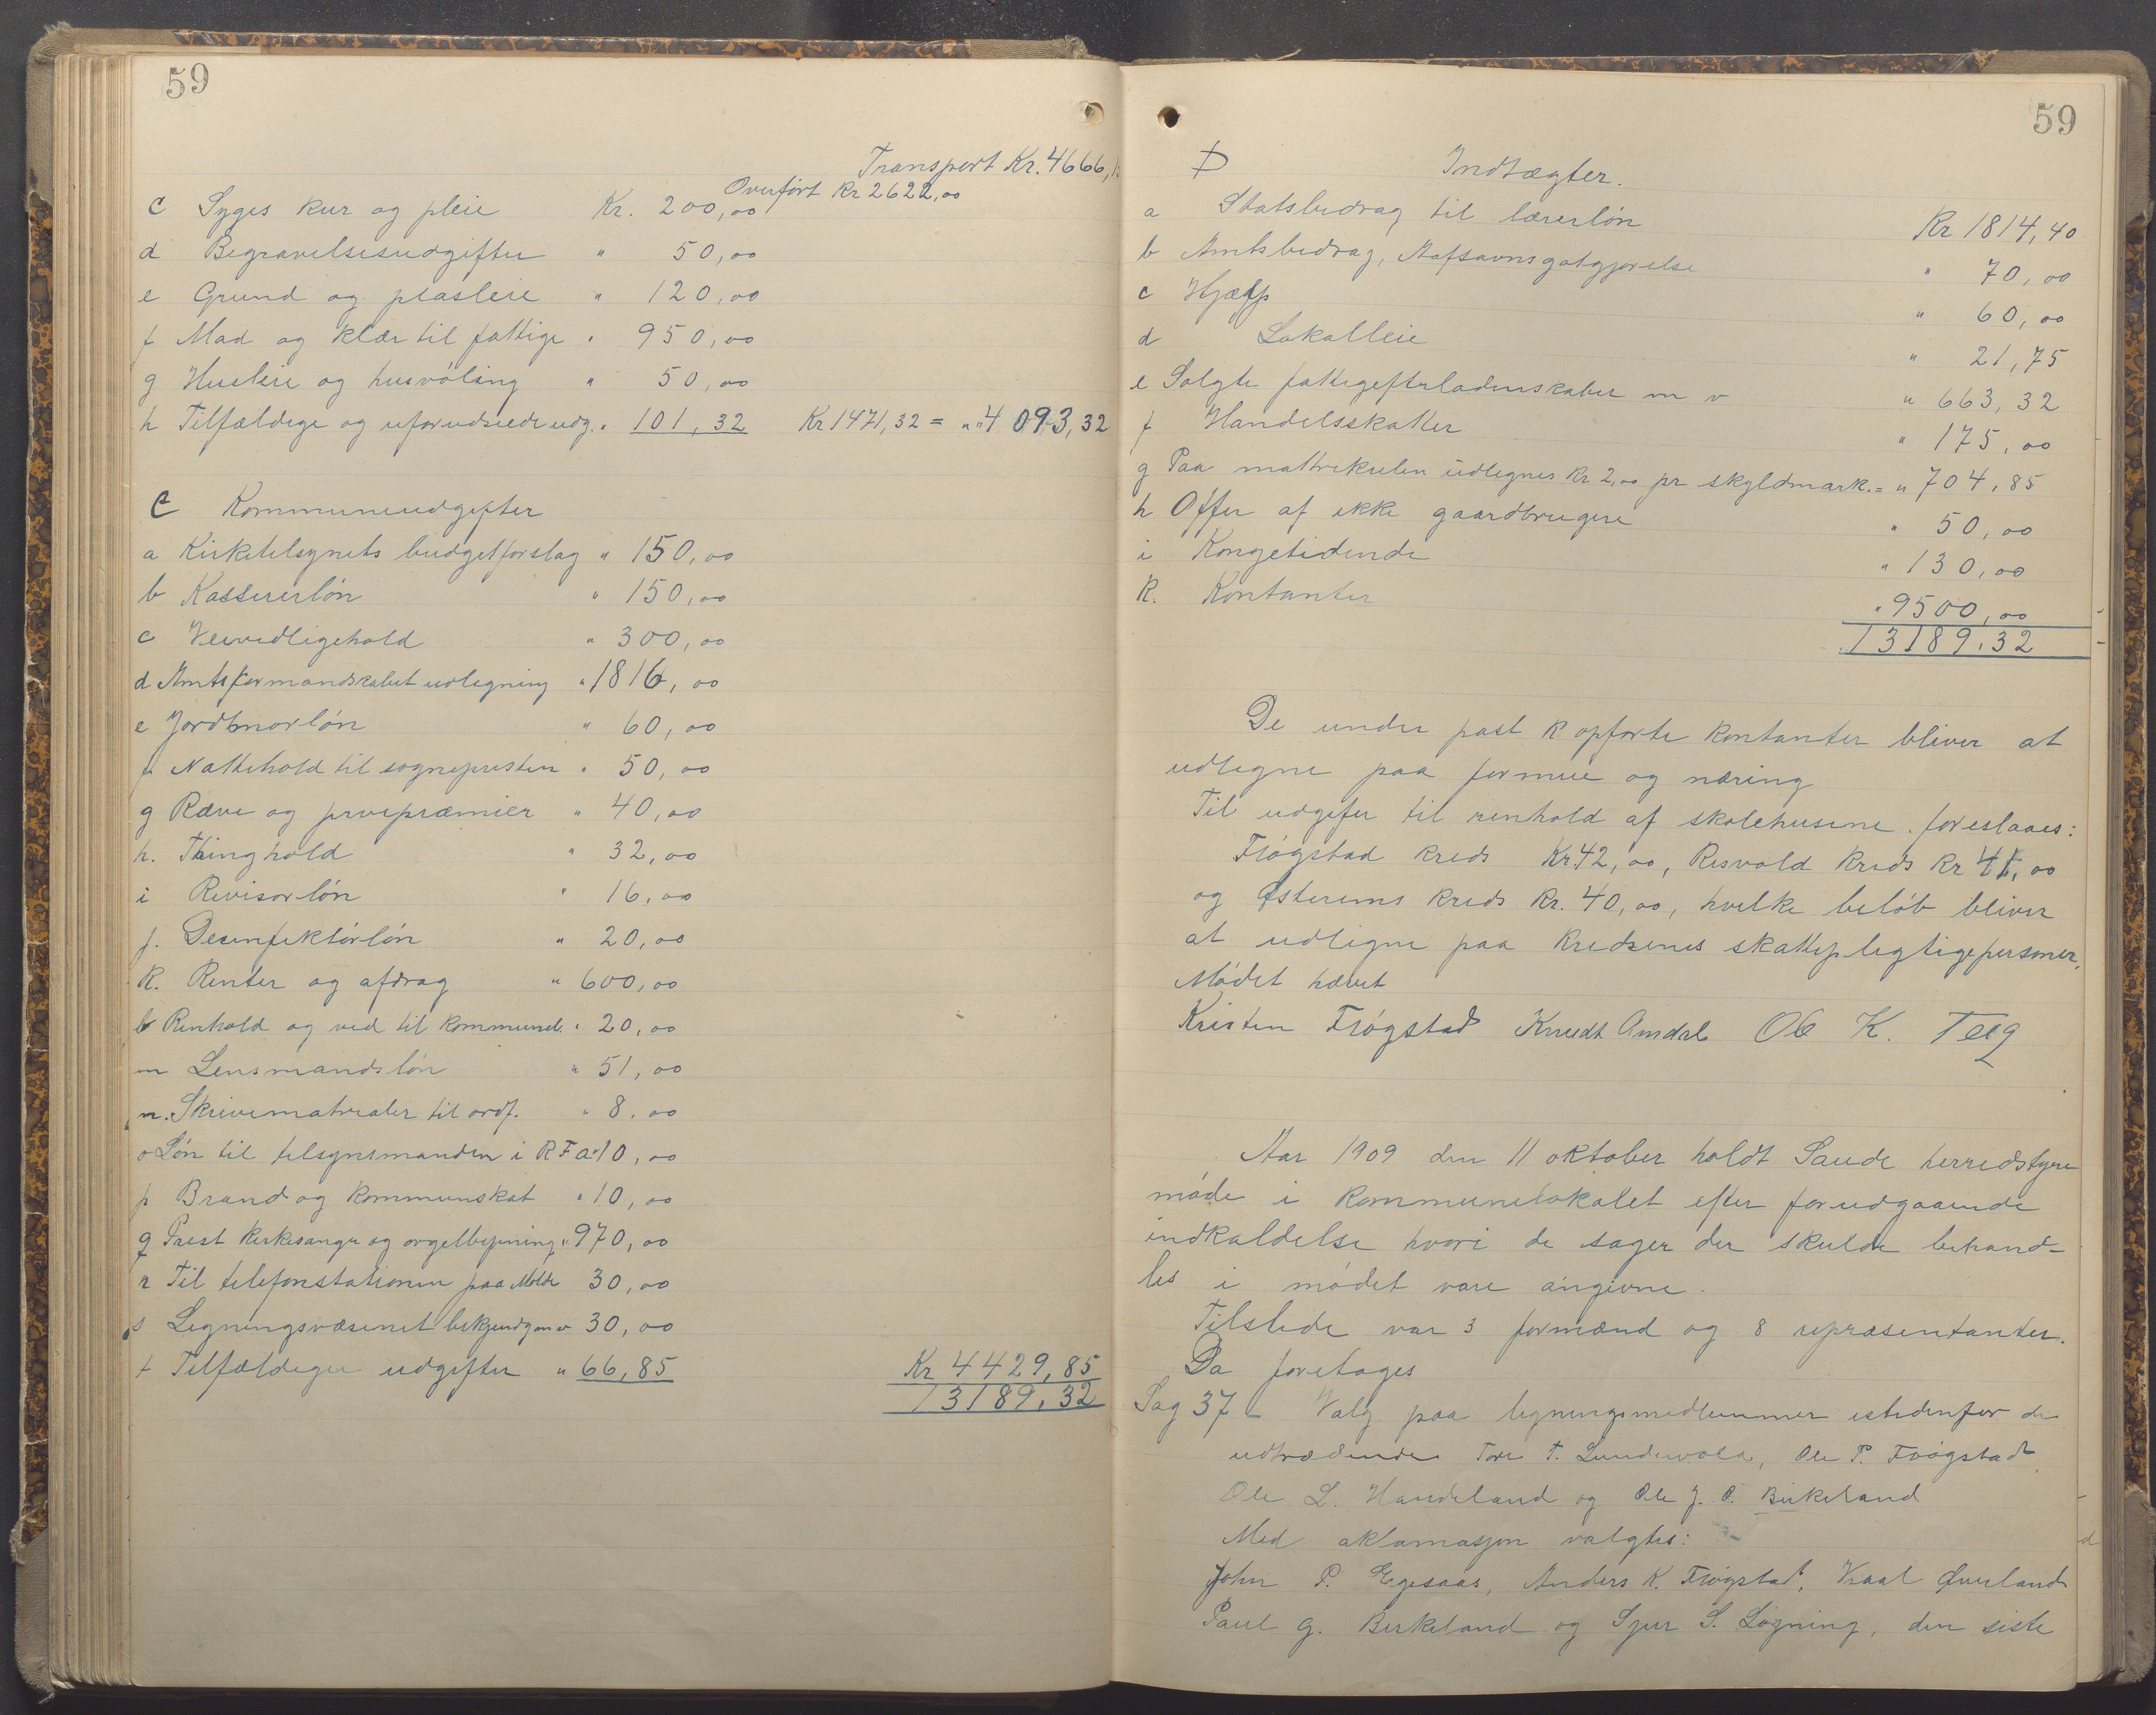 59
Transport Kr. 4666,1
Overført Kr 2622,00
c Syges kur og pleie Kr. 200,00
d Begravelsesudgifter " 50,00
e Grund og pladsleie " 120,00
f Mad og klær til fattige " 950,00
g Husleie og husvøling " 50,00
h Tilfældige og uforudseede udg. " 101,32 Kr 1471,32 = " " 4093,32
C Kommuneudgifter
a Kirketilsynets budgetforslag " 150,00
b Kassererløn " 150,00
c Veivedligehold " 300,00
d Amtsformandskabet udligning " 1816,00
e Jordmorløn " 60,00
f Nattehold til sognepresten " 50,00
g Ræve og præmier " 40,00
h. Thinghold " 32,00
i Revisorløn " 16,00
j. Desenfektørløn " 20,00
k. Renter og afdrag " 600,00
l Renhold og ved til kommunel. " 20,00
m Lensmandsløn " 51,00
n. Skrivematrialer til ordf. " 8,00
o Løn til tilsynsmanden i R F a " 10,00
p Brand og kommuneskat " 10,00
q Prest kirkesanger og orgelbetjening " 970,00
r Til telefonstationen paa Molde 30,00
s Ligningsvæsenet bekjendtg m v 30,00
t Tilfældige udgifter " 66,85 Kr 4429,85
13189,32
59
D Indtægter.
a Statsbidrag til lærerløn Kr 1814,40
b Amtsbidrag, Aafsavnsgodtgjørelse " 70,00
c Hjælp " 60,00
d Lokalleie " 21,75
e Solgte fattigefterladenskaber m v " 663,32
f Handelsskatter " 175,00
g Paa mattrikulen udlignes Kr 2,00 pr skyldmark. = " 704,85
h Offer af ikke gaardbrugere " 50,00
i Kongetidende " 130,00
k. Kontanter " 9500,00
13189,32
De under post k opførte kontanter bliver at
udligne paa formue og næring
Til udgifer til renhold af skolehusene foreslaaes:
Frøgstad kreds Kr. 42,00, Risvold kreds Kr 41,00
og Østerems kreds Kr. 40,00, hvilke beløb bliver
at udligne paa kredsenes skattepligtige personer.
Mødet hævet
Kristen Frøgstad Knudt Amdal Ole K. Teig
Aar 1909 den 11 oktober holdt Saude herredstyre
møde i kommunelokalet efter forudgaaende
indkaldelse hvori de sager der skulde behand-
les i mødet vare angivne.
Tilstede var 3 formænd og 8 repræsentanter.
Da foretages
Sag 37 – Valg paa ligningsmedlemmer istedenfor de
udtrædende Tore T. Lundevold, Ole P. Frøgstad
Ole L. Handeland og Ole J. P. Birkeland
Med aklamasjon valgtes:
John P. Egesaas, Anders K. Frøgstad, Øverland
Paul G. Birkeland og Sjur S. Løgning, den siste